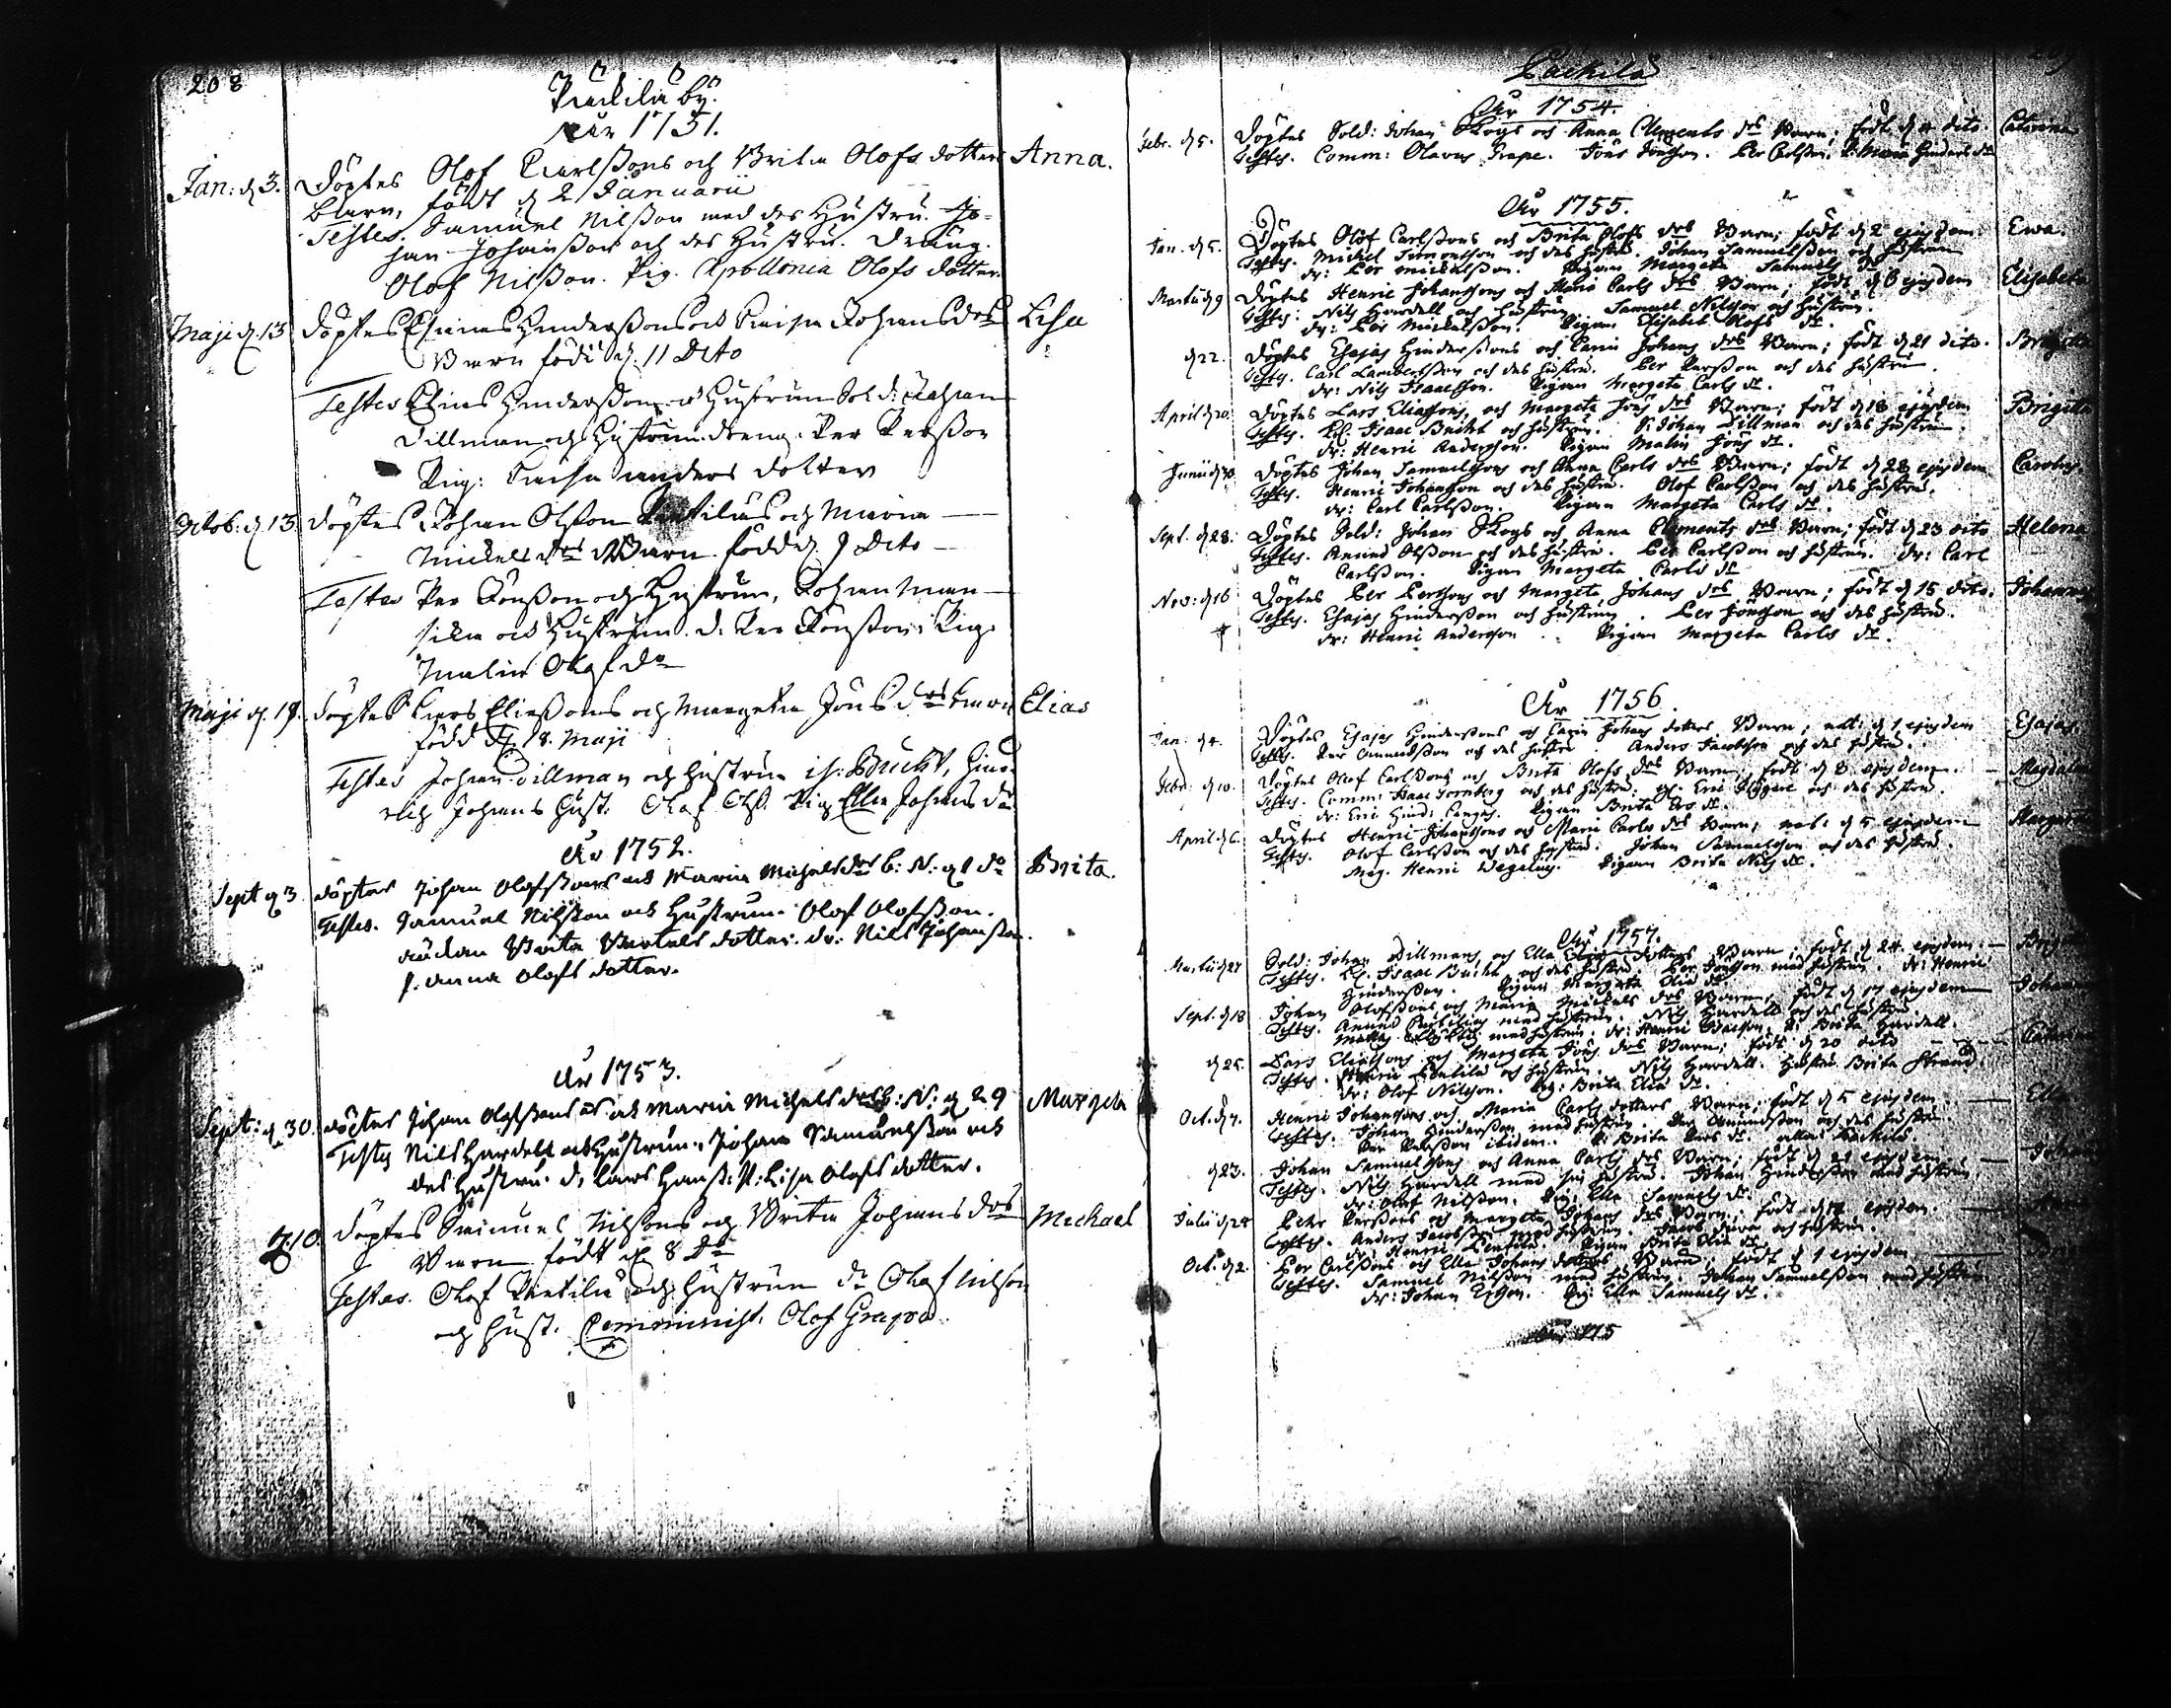 208
Packila by.
År 1751.
Jan: d 3. Döptes Olof Carlßons och Brita Olofs dotters Anna.
barn, födt d 2 Januarii
Testes. Samuel Nilßon med des Hustru. Jo-
han Johanßon och des Hustru. Dräng.
Olof Nilßon. Pig. Apollonia Olofs dotter.
Maji d. 13 döptes Hinderßons och Caisa Johans drs Lisa
Barn födt d. 11 Dito
Testes Elias Hinderßon o Hustrun Sold: Johan
Dillman och Hustrun dreng. Per Perßon
Pig: Caisa anders dotter
Octob: d. 13 döptes Johan Olßon och Maria
Mickels drs Barn född d. 9 Dito
Testes Per Jonßon och Hustrun, Johan Man-
och Hustrun. d. Per Jonßon. Pig.
Malin Olofs dr
Maji d. 19. döptes Lars Eliaßons och Margeta Jons drs barn Elias
född d. 18. Maji
Testes Johan Dillman och hustru is: Bucht, Hind-
rich Johans Hust: Olof Olß. Pig Ella Johans dr
År 1752.
Sept d 3 döptes Johan Olofßons och Maria Michels dr b: N: d 1 do Brita.
Testes. Samuel Nilßon och Hustrun. Olof Olofßon.
änckan Brita Bertels dotter. dr: Nils Johanßon.
p. Anna Olofs dotter.
År 1753.
Sept: d. 30. döptes Johan Olofßons och Maria Michels drs b: N: d 29 Margeta
Testes Nils Hardell och Hustrun. Johan Samuelßon och
des Hustru. d. Lars Hanß: P: Lisa Olofs dotter.
d. 10. döptes Samuel Nilßons och Brita Johans drs Michael
Barn födt d. 8 do
Testes. Olof och hustrun dr Olof Nilßon
och Hust. Comminist. Olof Grape.
Packila
År 1754.
Febr. d 5. Döptes Sold: Johan Skogs och Anna Clements drs Barn; födt d 4 dito. Catarina
Testes. Comm: Olavus Grape. Jöns Jönßon. Per Carlßon. P: Maria Hinders dr
År 1755.
Jan. d 5. Döptes Olof Carlßons och Brita Olofs drs Barn; födt d 2 ejusdem. Ewa.
Testes. Mickel och des hustru. Johan Samuelßon och hustrun
dr: Per Mickelßon. Pigan Margeta Samuels dr
Martii d 9 Döptes Henric Johanßons och Maria Carls drs Barn; födt d 6 ejusdem Elisabeta
Testes: Nils Hardell och hustrun. Samuel Nilßon och hustrun.
dr: Per Mickelßon. Pigan Elisabet Olofs dr.
d 22. Döptes Esajas Hinderßons och Carin Johans drs Barn; födt d 21 dito. Brigitta
Testes. Carl Lambertßon och des hustru. Per Perßon och des hustru.
dr: Nils Isaacßon. Pigan Margeta Carls dr.
April d 20. Döptes Lars Eliaßons, och Margeta Jöns drs Barn; födt d 18 ejusdem Brigitta
Testes. Isaac Bucht och hustrun. S: Johan Dillman och des hustru.
dr: Henric Anderßon. Pigan Malin Jöns dr.
Junii d 30 Döptes Johan Samuelßons och Anna Carls drs Barn; födt d 28 ejusdem Carolus.
Testes. Henric Johanßon och des hustru. Olof Carlßon och des hustru.
dr: Carl Carlßon. Pigan Margeta Carls dr.
Sept. d 28: Döptes Sold: Johan Skogs och Anna Clements drs Barn; födt d 23 dito Helena
Testes. Amund Olßon och des hustru. Per Carlßon och hustrun. dr: Carl
Carlßon. Pigan Margeta Carls dr
Nov: d 16 Döptes Per Perßons och Margeta Johans drs Barn; födt d 15 dito. Johannes
Testes. Esajas Hinderßon och hustrun. Per Jönßon och des hustru.
dr: Henric Anderßon Pigan Margeta Carls dr.
År 1756.
Jan: d 4. Döptes Esajas Hinderßons och Carin Johans dotters Barn, nat: d 1 ejusdem Esajas.
Testes. Per Amundßon och des hustru. Anders Jacobßon och des hustru.
Febr: d 10. Döptes Olof Carlßons och Brita Olofs drs Barn, födt d 8 ejusdem. Magdalena
Testes. Comm: Isaac Tornberg och des hustru: Eric Nygere och des hustru.
dr: Eric Hind: Pigan Brita Ers dr.
April d 6. Döptes Henric Johanßons och Maria Carls drs Barn; nat: d 5 ejusdem Margareta
Testes. Olof Carlßon och des hustru. Johan Samuelßon och des hustru.
Mag. Henric Wegelius. Pigan Brita Nils dr.
År 1757.
Martii d 27 Sold: Johan Dillmans och Ella dotters Barn; födt d 24. ejusdem. Brigitta
Testes. Isaac Bucht och des hustru. Per Jönßon med hustrun. dr: Henric
Hinderßon. Pigan Margeta Elia dr.
Sept. d 18 Johan Olofßons och Maria Mickels drs Barn, födt d 17 ejusdem Johannes
Testes. Amund med hustrun. Nils Hardell och des hustru.
Mattz med hustrun. dr: Henric P: Brita Hardell.
d 25. Lars Eliaßons och Margeta Jöns drs Barn; födt d 20 dito
Testes. och hustrun. Nils Hardell. Hustru Brita Strand.
dr: Olof Nilßon. Pig: Brita Elia dr.
Oct. d 7. Henric Johanßons och Maria Carls dotters Barn; födt d 5 ejusdem. Ella
Testes. Johan Hinderßon med hustrun. Per Amundßon och des hustru
Per Perßon ibidem. P: Brita Pers dr.
d 23. Johan Samuelßons och Anna Carls drs Barn; födt d 21 ejusdem.
Testes. Nils Hardell med sin hustru. Johan Hinderßon med hustrun
dr: Olof Nilßon. Pig: Ella Samuels dr.
Julii d 24 Pehr Perßons och Margeta Johans drs Barn; födt d 17 ejusdem.
Testes. Anders Jacobßon med hustrun. Jacob och hustrun.
dr: Henric Pigan Brita Elia dr.
Oct. d 2. Per Carlßons och Ella Johans dotters Barn; födt d 1 ejusdem
Testes. Samuel Nilßon med hustrun. Johan Samuelßon med hustrun
dr: Johan Pig: Ella Samuels dr.
År 175